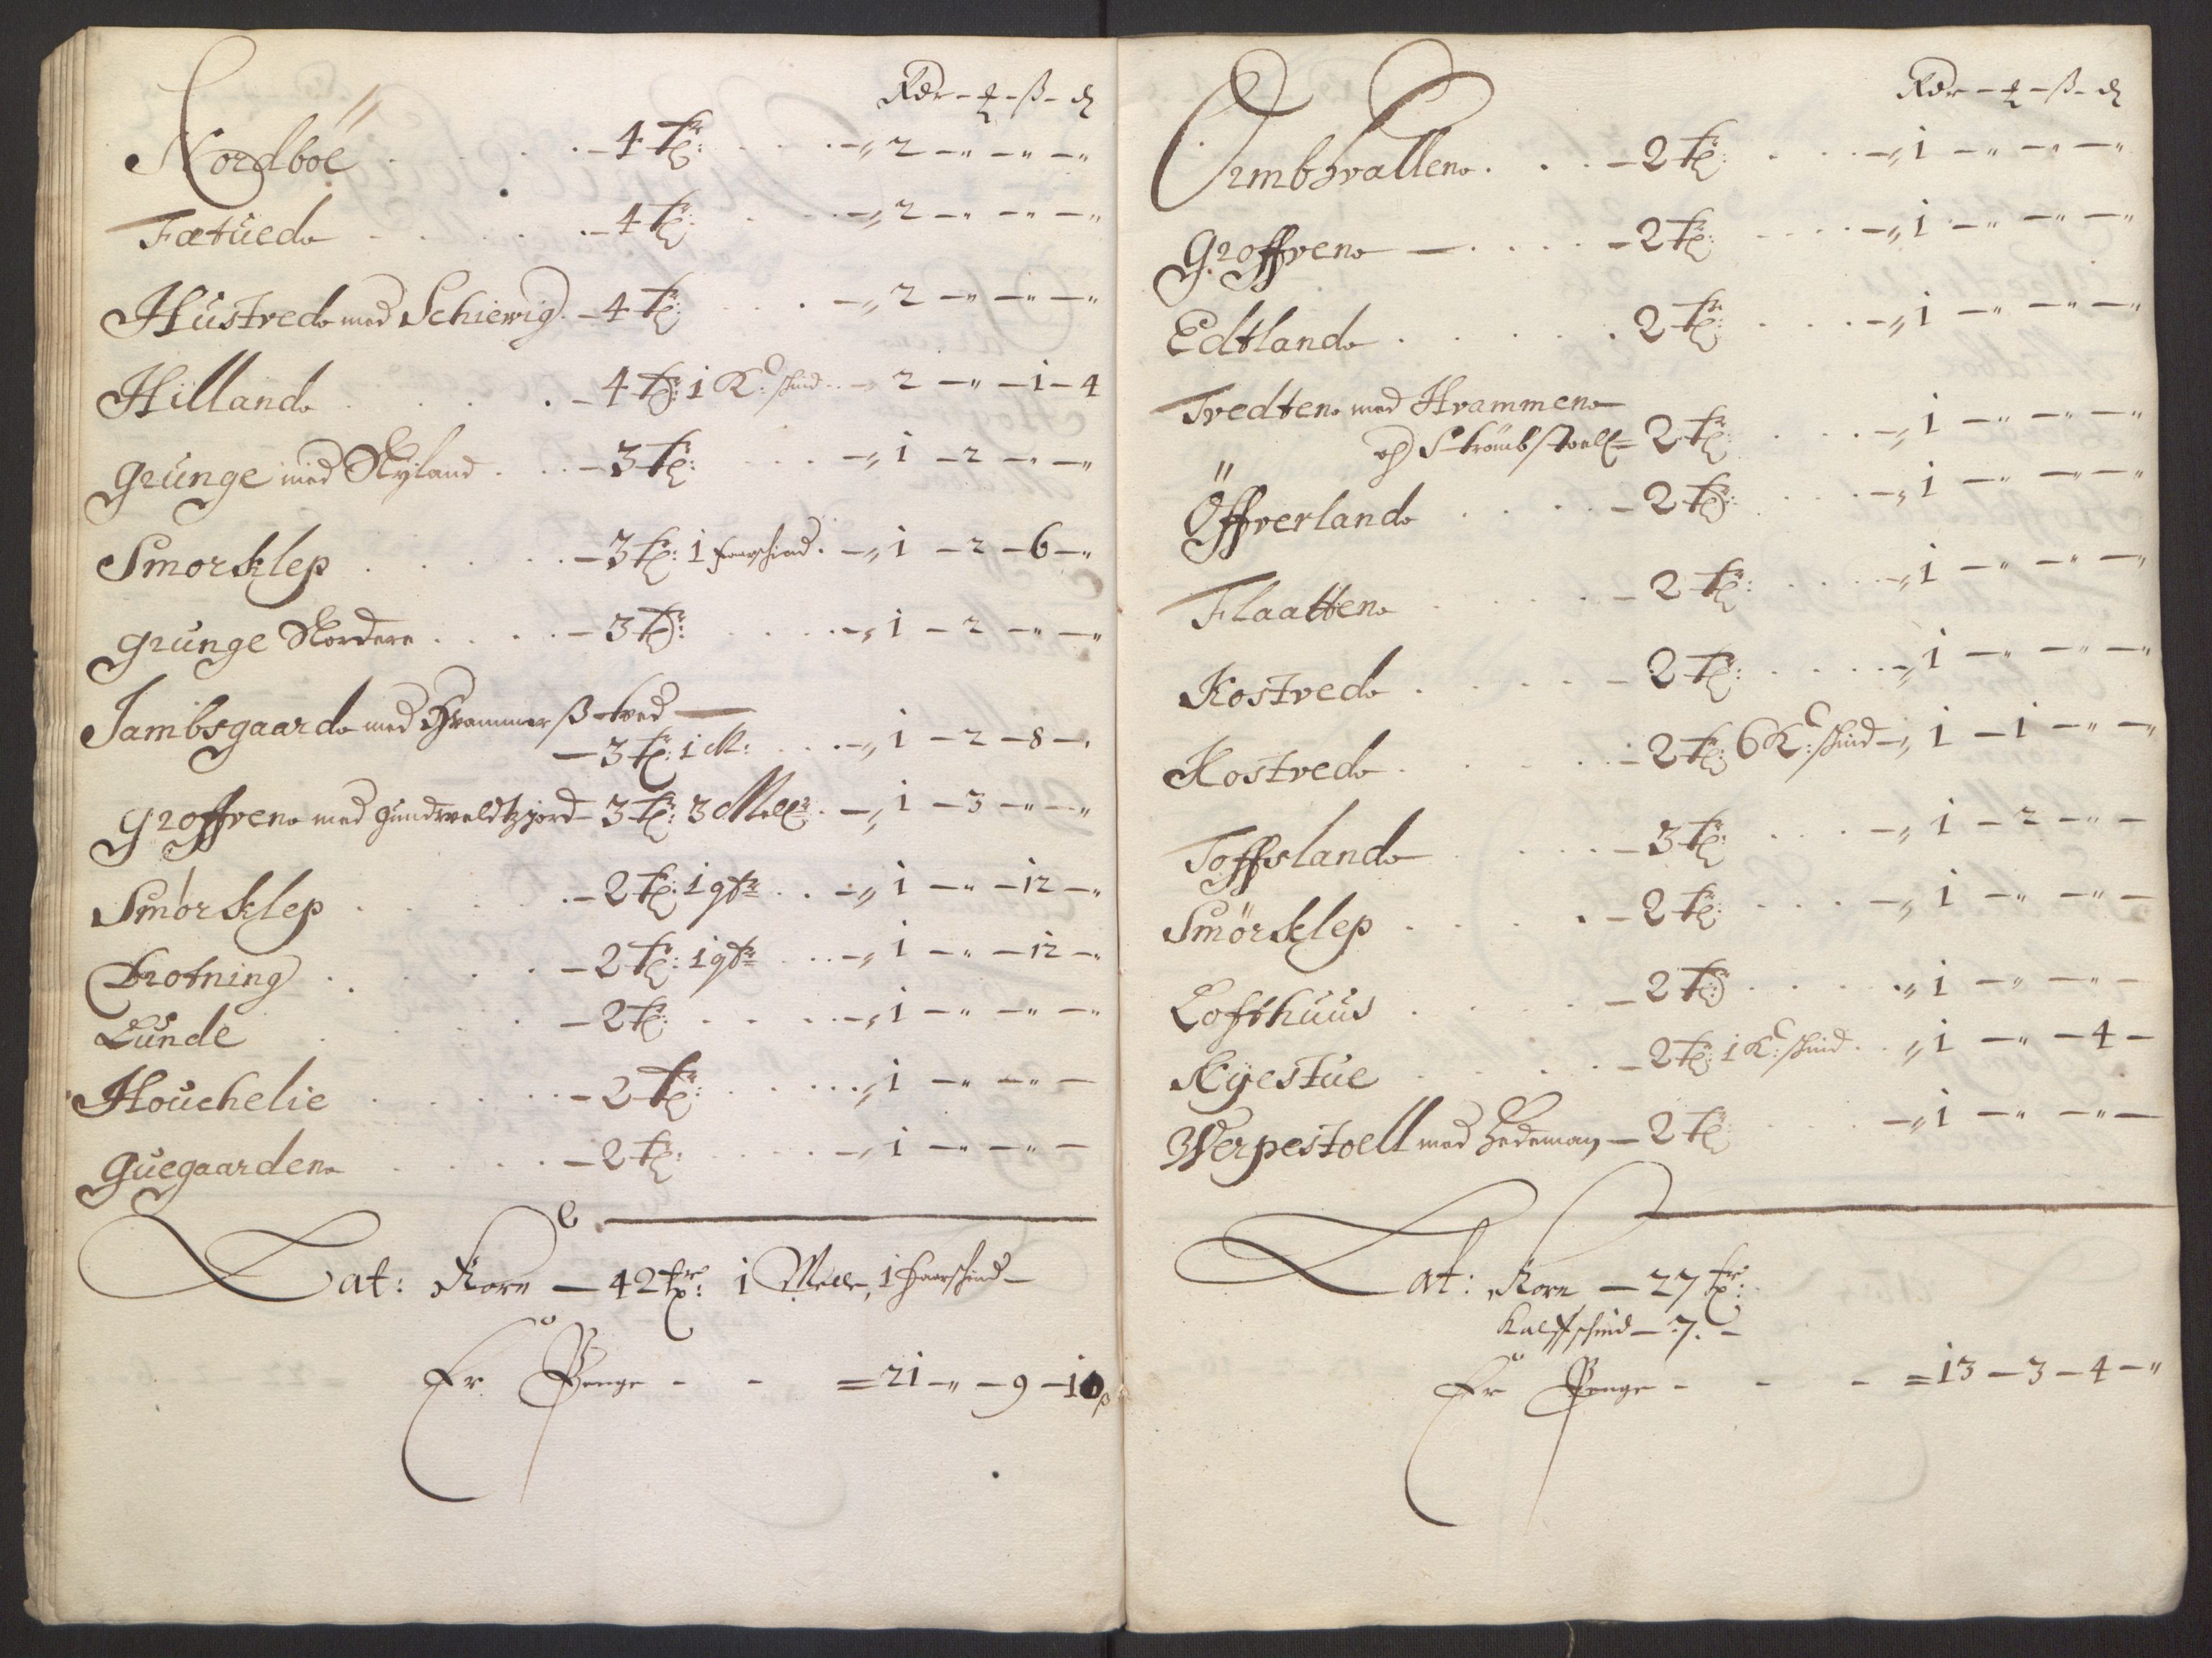 Rdr - ₰ - ß - d
Nordböe . . . . . - 4 tr: . . . - „ 2 - „ - „ - „
Fætued . . . . . - 4 tr: . . . - „ 2 - „ - „ - „
Hustved med Schiewig . - 4 tr: . . . - „ 2 - „ - „ - „
Hilland . . . . - 4 tr: 1 K: schind . - „ 2 - „ - 1 - 4
Grunge med Nyland . . . - 3 tr: . . . - „ 1 - 2 - „ - „
Smorklep . . . . . - 3 tr: 1 faarschind . - „ 1 - 2 - 6 - „
Grunge Nordere . . . . - 3 tr: . . . - „ 1 - 2 - „ - „
Jambsgaard med Hrammersstved
- 3 tr: 1 M: . . . - „ 1 - 2 - 8 - „
Groffven med - 3 tr: 3 Mell . - „ 1 - 3 - „ - „
Smorklep . . . . . - 2 tr: 1 qtr . . - „ 1 - „ - 12 - „
Drotning . . . . . - 2 tr: 1 qtr . . . - „ 1 - „ - 12 - „
Lunde . . . . - 2 tr: . . . . - „ 1 - „ - „ - „
Houchelie . . . . . - 2 tr: . . . . . „ 1 - „ - „ -
Guegaarden . . . . - 2 tr: . . . . - „ 1 - „ - „ -
Lat: Korn - 42 tr: 1 Mele, 1 faarschind -
Er Penge - - = 21 - „ - 9 - 10
Rdr - ₰ - ß - d
Ormbhvallen . . . - 2 tr: . . . . - „ 1 - „ - „ - „
Groffven - . . . . - 2 tr: . . . . - „ 1 - „ - „ - „
Edtland . . . . . 2 tr: . . . . - „ 1 - „ - „ - „
Tvedten med Hrammen
och Strömbstoell - 2 tr: . . . . - „ 1 - „ - „ - „
Öffverland . . . . - 2 tr: . . . . - „ 1 - „ - „ - „
Flaatten . . . . . - 2 tr: . . . . - „ 1 - „ - „ - „
Kostved . . . . . - 2 tr: . . . . - „ 1 - „ - „ - „
Kostved . . . . . - 2 tr: 6 K: schind - „ 1 - 1 - „ - „
Toffsland . . . . - 3 tr: . . . - „ 1 - 2 - „ -
Smörklep . . . . . - 2 tr: . . . . - „ 1 - „ - „ -
Lofthuus . . . . - 2 tr: . . . . . „ 1 - „ - „ -
Nyestue . . . . . - 2 tr: 1 K: schind . . „ 1 - „ - 4 -
Werpestoell med Hedemay - 2 tr: . . . . - „ 1 - „ - „ -
Lat: Korn - 27 tr:
Kalffschind - 7. -
Er Penge - - - = 13 - 3 - 4 - „